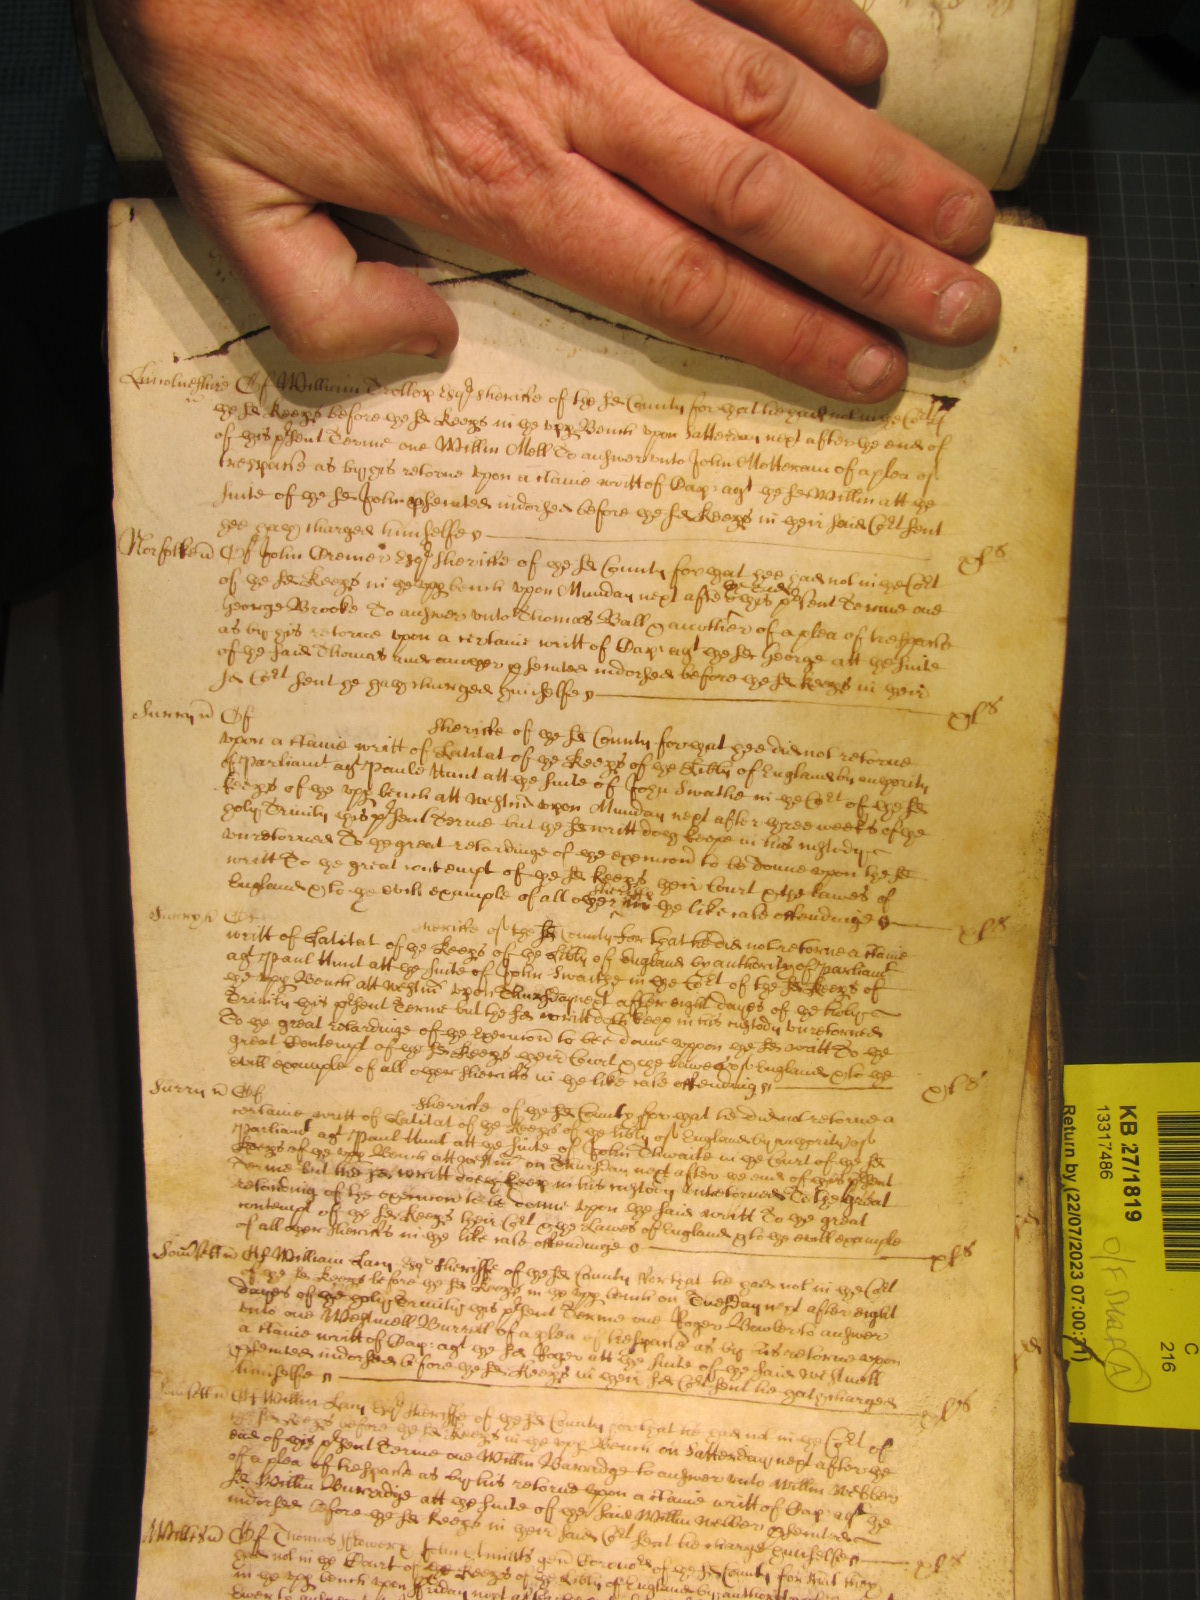 Lincolneshire Of William Trollop Esqr Sheriffe of the sd County for that he had not in the Cort of
the sd Keeps before the sd Keeps in the upp Bench upon Satterday next after the end of
of this psent Terme one Willm Mell To answer unto John Motteram of a plea of
trespasse as by his retorne upon a ctaine writt of Cap: agt the sd Willm att the
suite of the sd John psented indorsed before the sd Keeps in their said Cort sent
hee hath charged himselfe
xls
Norfolke Of John Cremer Esqr Sheriffe of the sd County for that hee had not in the Cort
of the sd Keeps in the upp bench upon Munday next after this psent Terme one
George Brooke To answer unto Thomas Ball & another of a plea of trespasse
as by his retorne upon a certaine writt of Cap: agt the sd George att the suite
of the said Thomas and another psented indorsed before the sd Keeps in their
sd Cort sent he hath charged himselfe
xls
Surry Of Sheriffe of the sd County for that hee did not retorne
upon a ctaine writt of Latitat of the Keeps of the Libty of England by authority
of Parliamt agt Paule Hunt att the suite of John Swaithe in the Cort of the sd
Keeps of the upp bench att Westmr upon Munday next after three weeks of the
holy Trinity this psent Terme but the sd writt doth keepe in his custody
unretorned To the great retardinge of the execucon to be donne upon the sd
writt To the great contempt of the sd Keeps their Court & the Lawes of
England & to the evill example of all other sheriffs in the like case offendinge
xls
Surry Of Sheriffe of the sd County for that he did not retorne a ctaine
writt of Latitat of the Keeps of the Libty of England by authority of Parliamt
agt Paul Hunt att the suite of John Swaithe in the Cort of the sd Keeps of
the upp Bench att Westmr upon Thursday next after eight dayes of the holy
Trinity this psent Terme but the sd writt doth keep in his custody unretorned
To the great retardinge of the execucon to bee donne uppon the sd writt To the
great Contempt of the sd Keeps their Court & the Lawes of England & to the
evill example of all other sheriffs in the like case offending
xls
Surry Of Sheriffe of the sd County for that he did not retorne a
certaine writt of Latitat of the Keeps of the libty of England by authority of
Parliamt agt Paul Hunt att the suite of John Thwaite in the Court of the sd
Keeps of the upp Bench att Westmr on Thursday next after the end of this psent
Terme but the sd writt doth keep in his custody unretorned To the great
retarding of the execucon to be donne upon the said writt To the great
contempt of the sd Keeps their Cort & the Lawes of England & to the evill example
of all other sheriffs in the like case offendinge
xls
Somsett Of William Lacy Esqr Sheriffe of the sd County For that he had not in the Cort
of the sd Keeps before the sd Keeps in the upp bench on Tuesday next after eight
dayes of the holy Trinity this psent Terme one Roger to answer
unto one Burratt of a plea of trespasse as by his retorne upon
a ctaine writt of Cap: agt the sd Roger att the suite of the said
psented indorsed before the sd Keeps in their sd Cort sent he hath charged
himselfe
xls
Somsett Of Willm Lacy Esqr Sheriffe of the sd County for that he had not in the Cort of
the sd Keeps before the sd Keeps in the upp Bench on Satterday next after the
end of this psent Terme one Willm Burridge to answer unto Willm Webber
of a plea of trespasse as by his retorne upon a ctaine writt of Cap: agt the
sd Willm Burridge att the suite of the said Willm Webber psented
indorsed before the sd Keeps in their said Cort sent he charge himselfe
xls
Of Thomas John gen Coronors of the sd County for that they
had not in the Court of the Keeps of the Libty of England by
in the upp bench upon Friday next
KB 27/1819
13317486
Return by (22/07/2023 07:00:31)
C
216